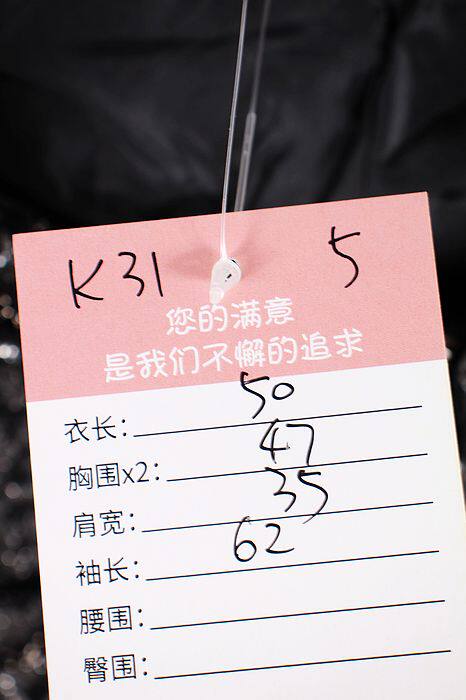 K31 5
您的满意
是我们不懈的追求
衣长: 50
胸围x2: 47
肩宽: 35
袖长: 62
腰围:
臀围: